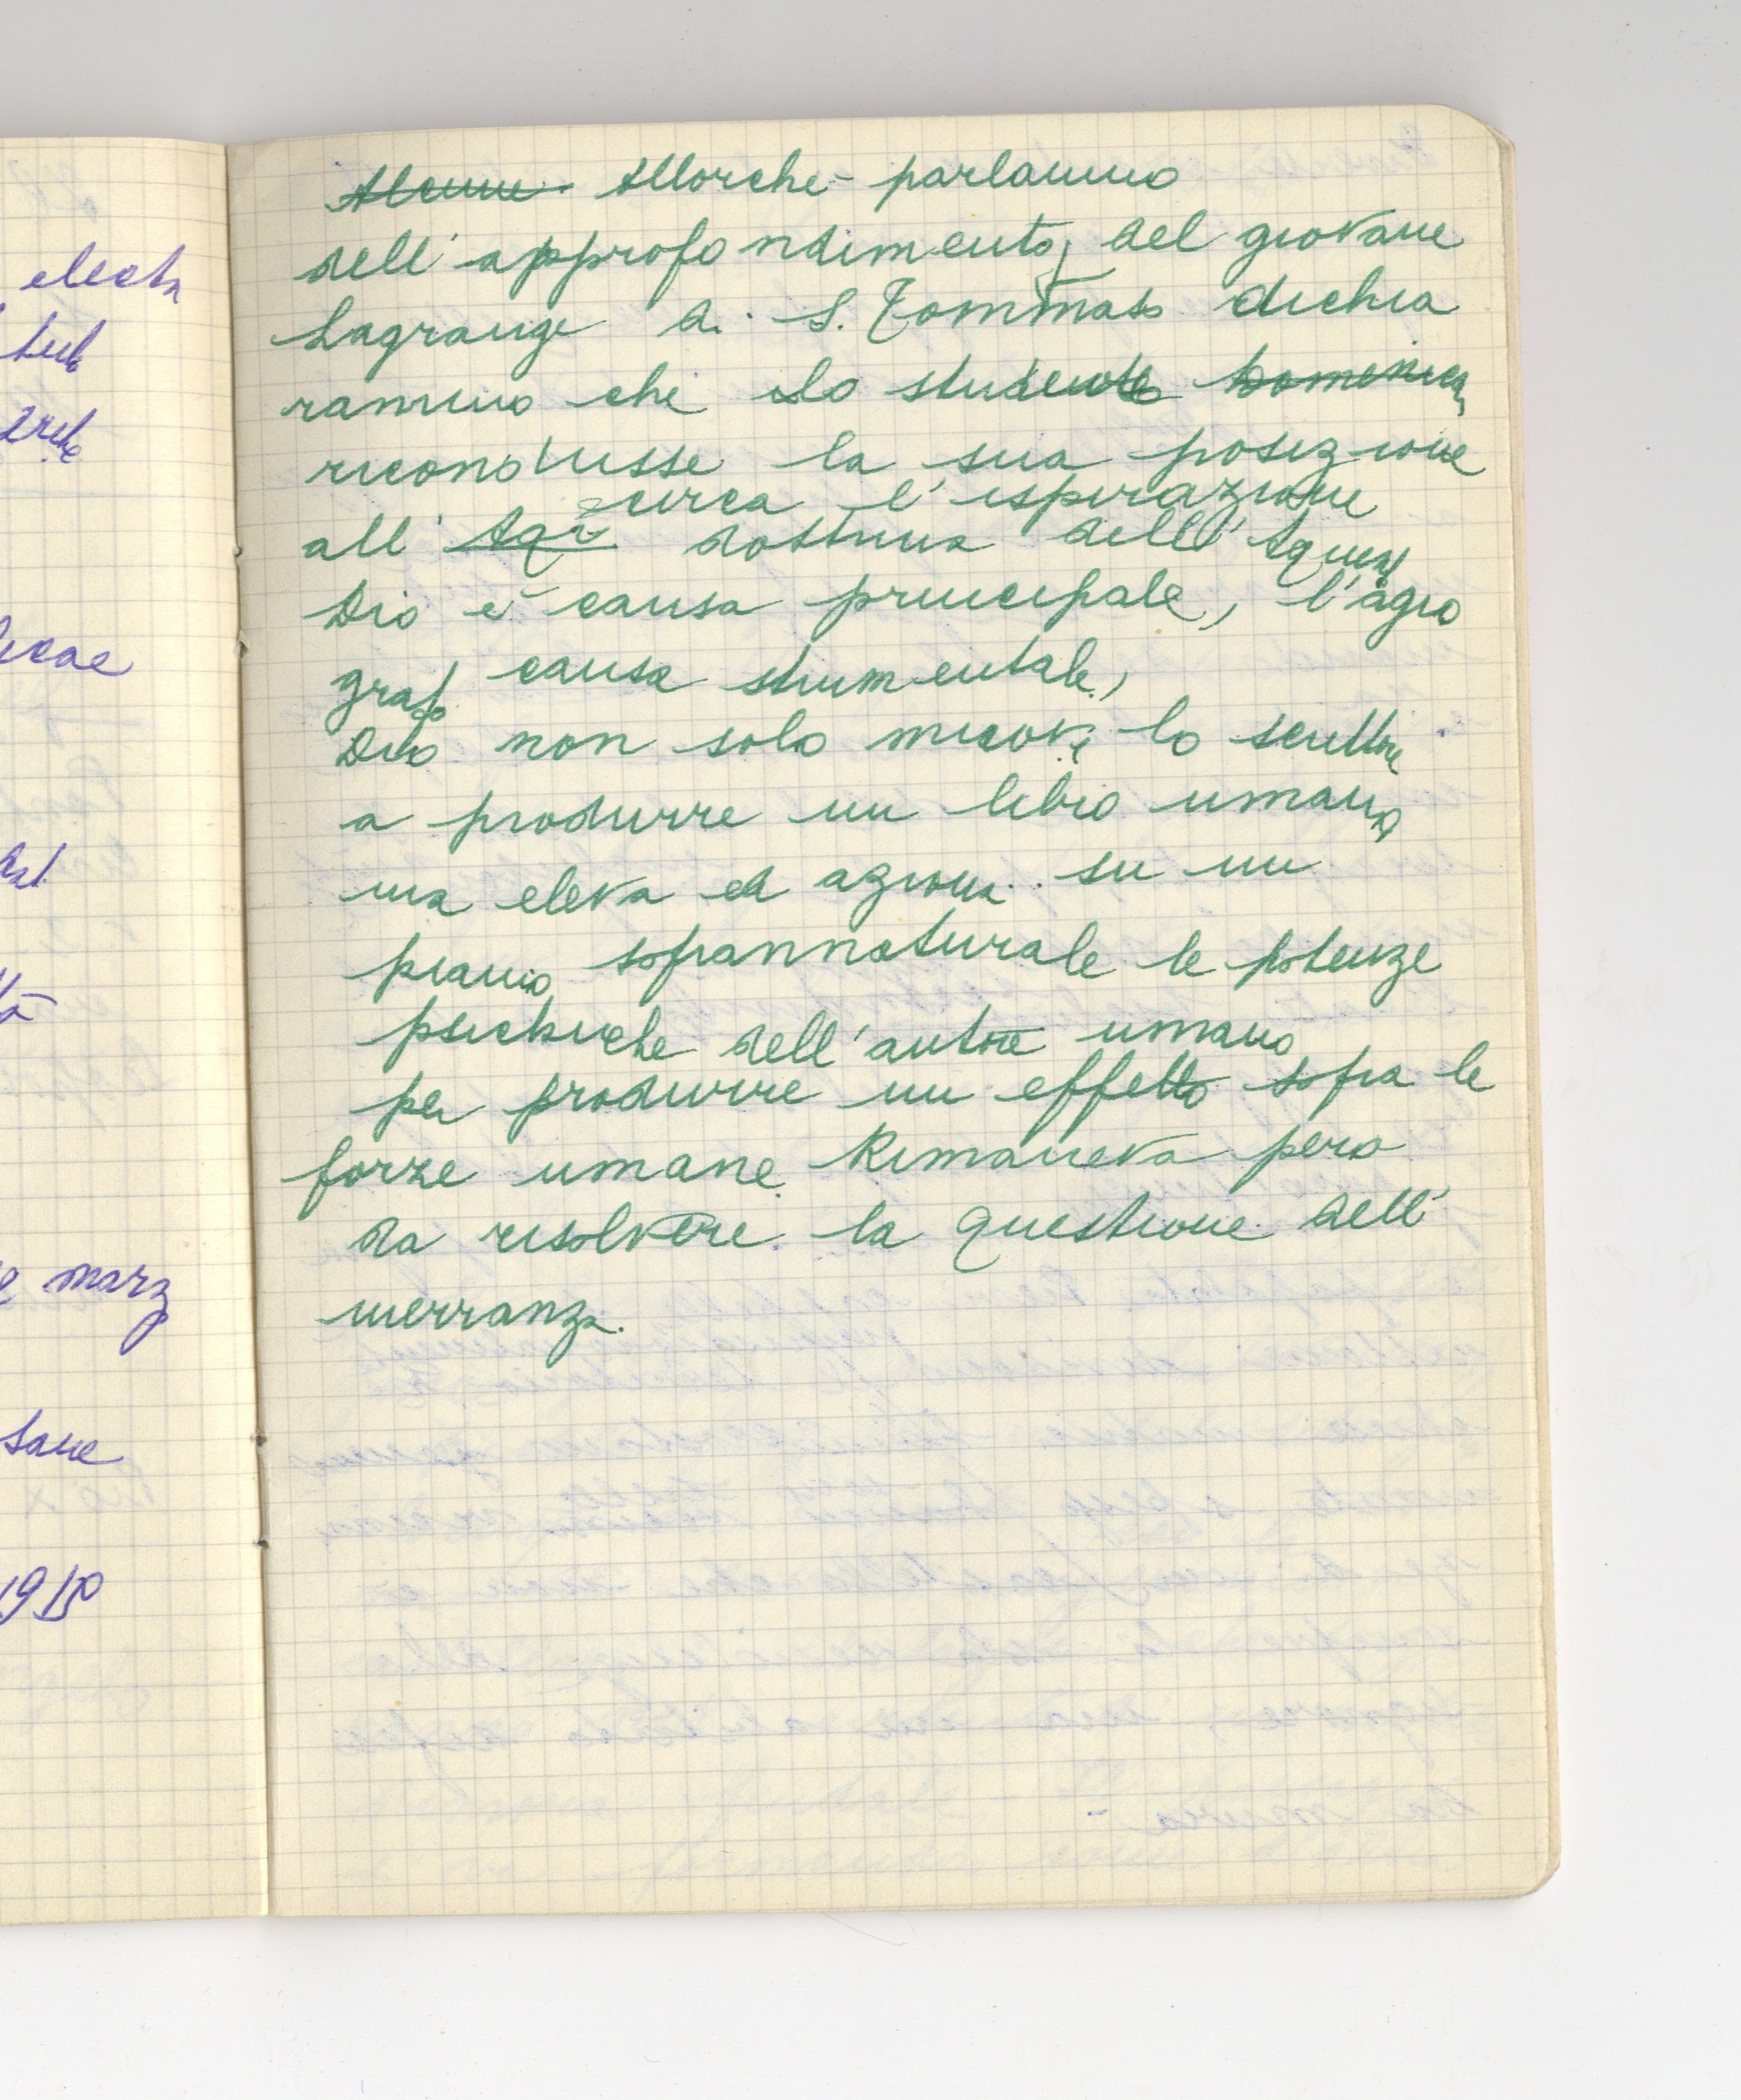 electr
tub
Alcune Allorchè parlammo
dell'approfondimento, del giovane
Lagrange di S. Tommaso dichia
rammo che lo studente Domenican
ricondusse la sua posizione
circa l'ispirazione
all' Aqr dottrina dell'Aquinat
Dio è causa principale, l'agio
grafo causa strumentale,
Dio non solo muove lo scrittore
a produrre un libro umano,
ma eleva ed aziona su un
piano soprannaturale le potenze
psichiche dell'autore umano
per produrre un effetto sopra le
forze umane. Rimaneva però
da risolvere la questione dell'
inerranza.
icae
e marz
sane